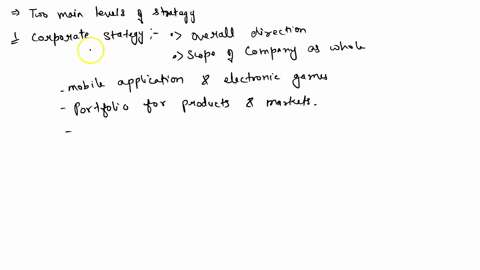 ⇒ Two main levels of strategy
1 Corporate stategy :- •> overall direction
•> Scope of Company as whole
- mobile application & electronic games
- Portfolio for products & markets.
-